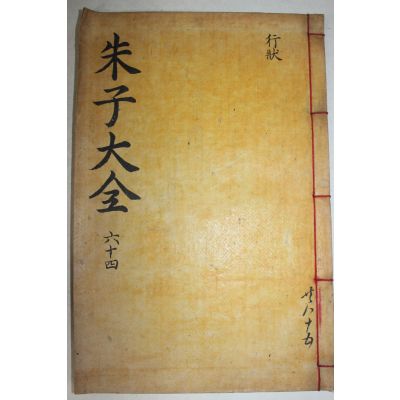 行狀
朱子大全
六十四